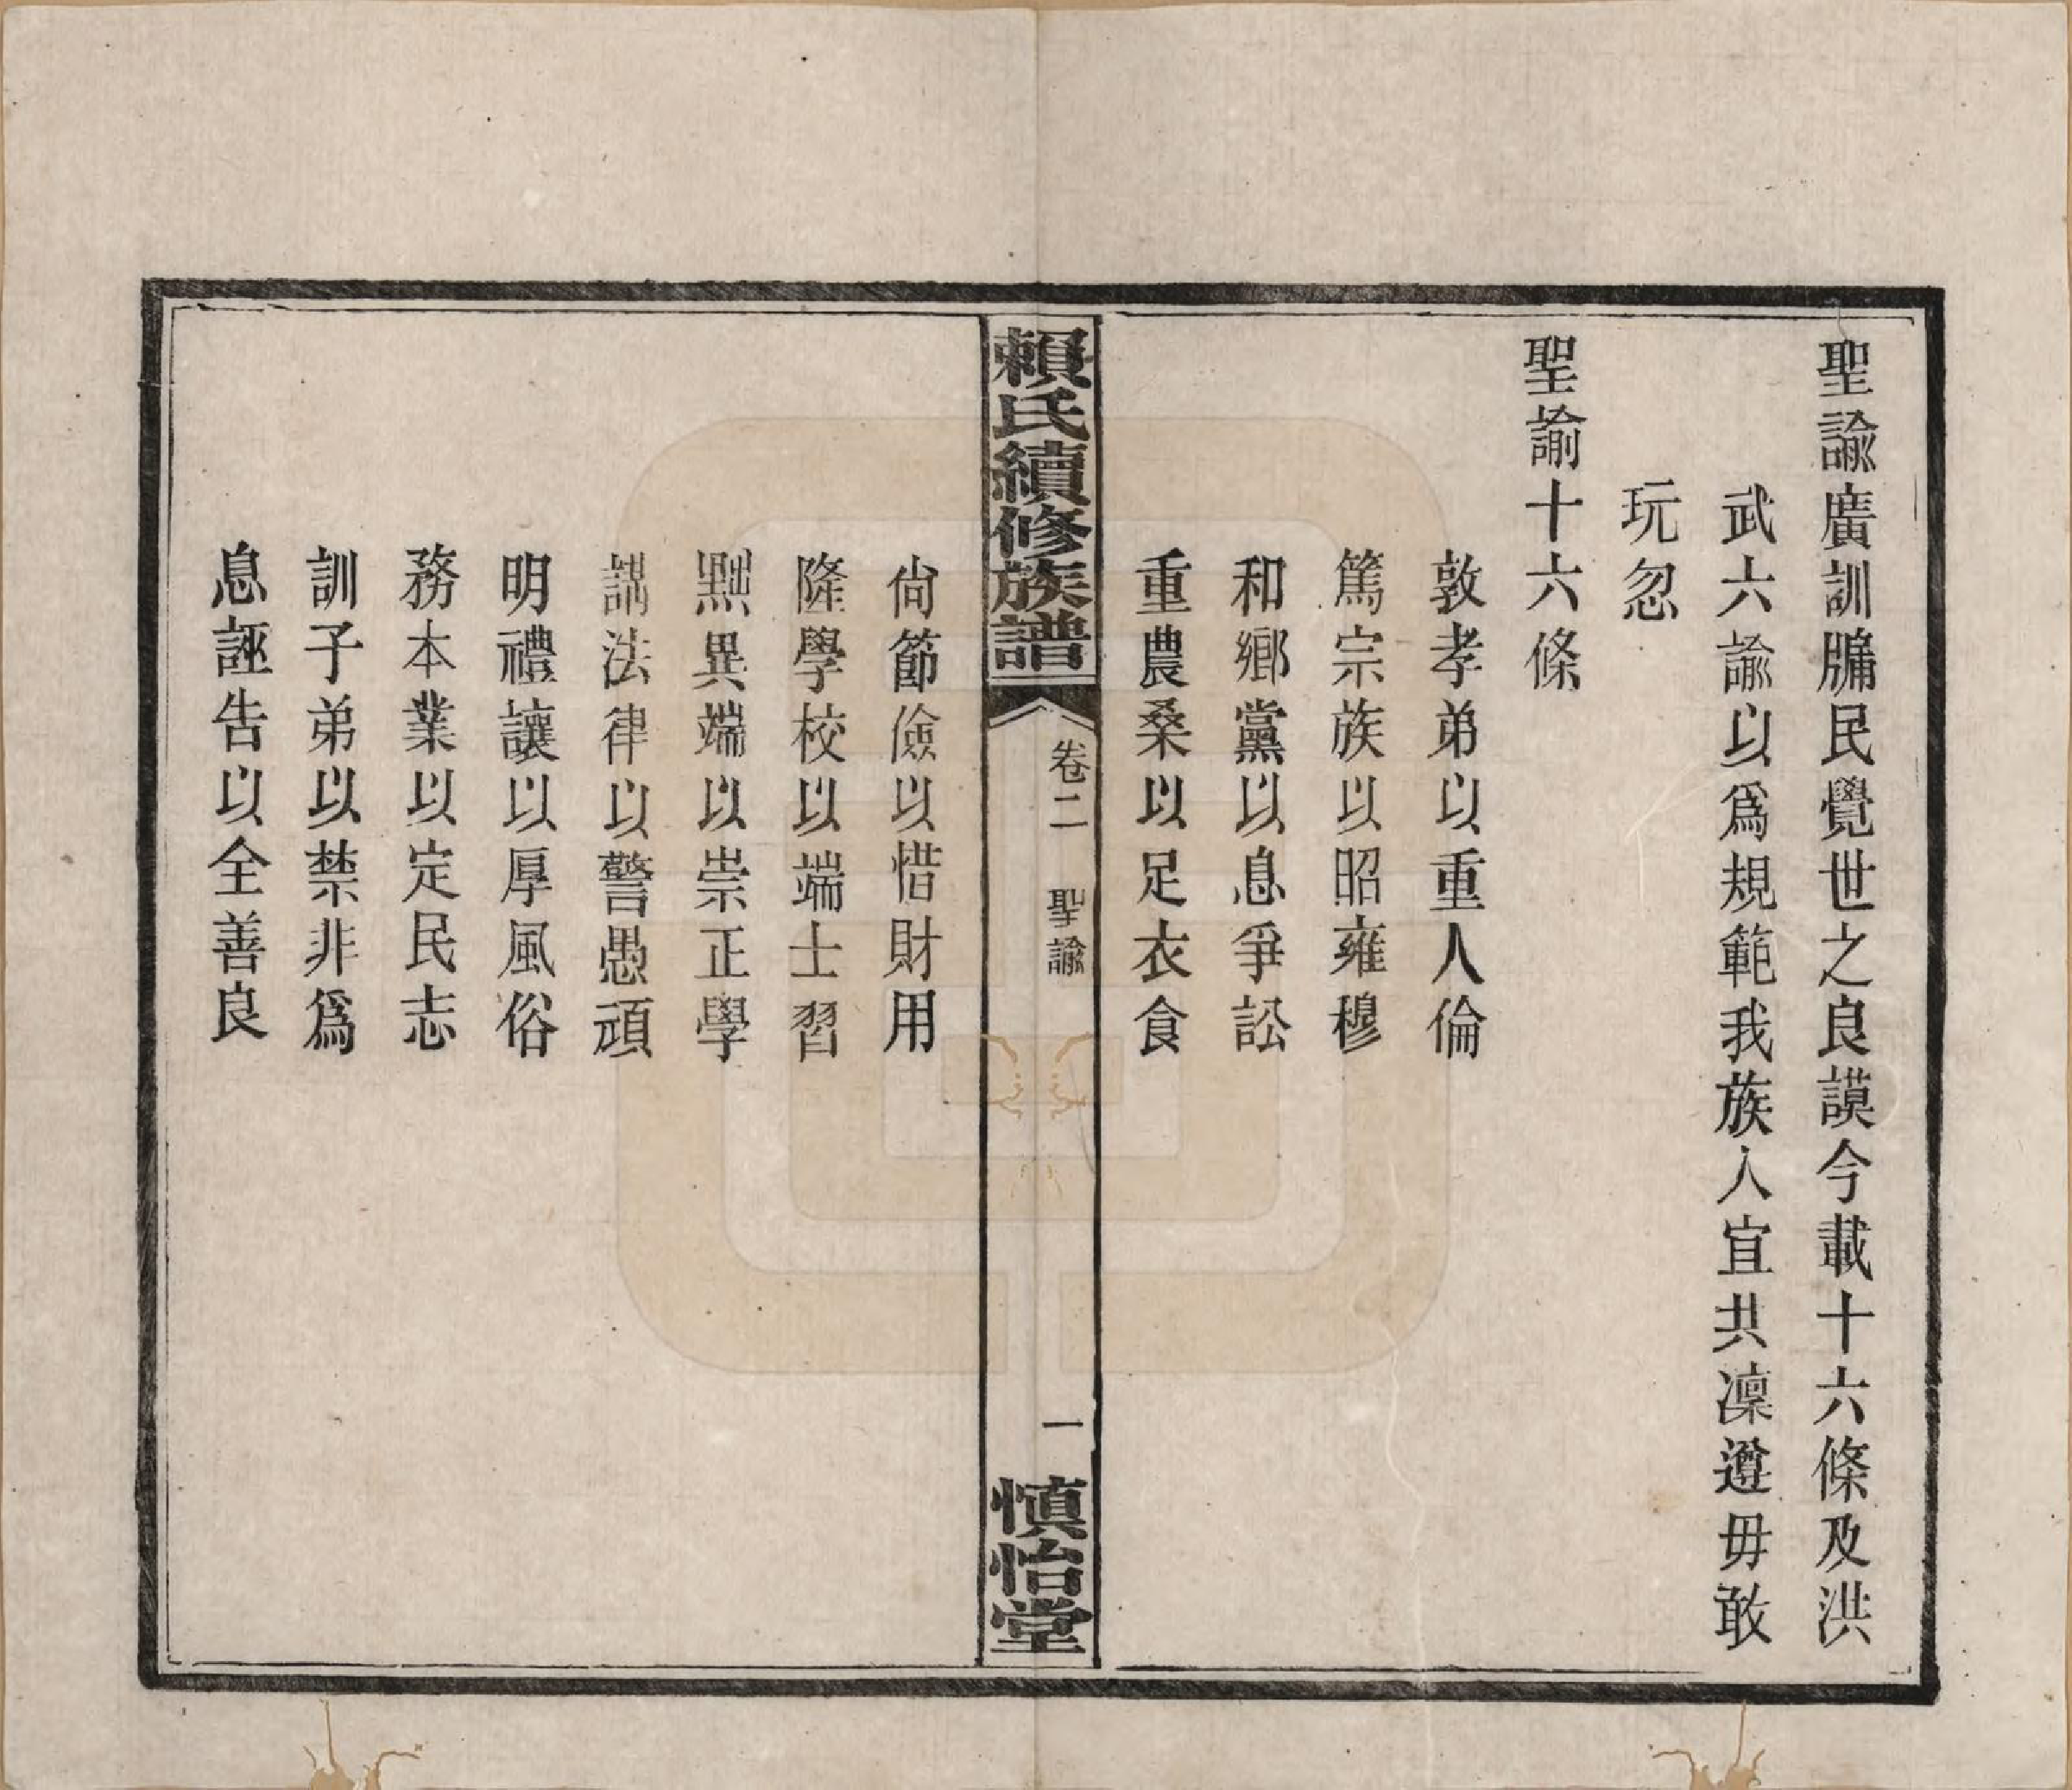 聖諭廣訓牖民覺世之良謨今載十六條及洪
武六諭以爲規範我族人宜共凜遵毋敢
玩忽
聖諭十六條
敦孝弟以重人倫
篤宗族以昭雍穆
和鄉黨以息爭訟
重農桑以足衣食
賴氏續修族譜
卷二 聖諭
一
慎怡堂
尙節儉以惜財用
隆學校以端士習
黜異端以崇正學
講法律以警愚頑
明禮讓以厚風俗
務本業以定民志
訓子弟以禁非爲
息誣告以全善良